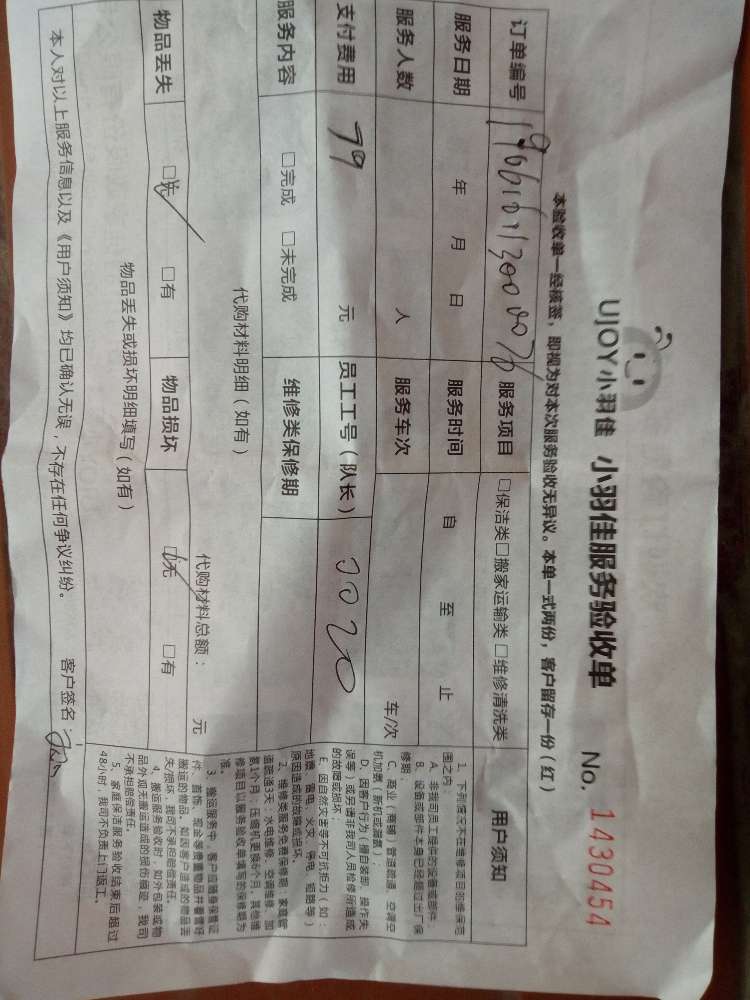 UJOY小羽佳 小羽佳服务验收单 No. 1430454
本验收单一经核签，即视为对本次服务验收无异议。本单一式两份，客户留存一份（红）
订单编号 服务项目 □保洁类□搬家运输类□维修清洗类
服务日期 年 月 日 服务时间 自 至 止
服务人数 人 服务车次 车/次
支付费用 79 元 员工工号（队长） 0020
服务内容 □完成 □未完成 维修类保修期
代购材料明细（如有）
代购材料总额： 元
物品丢失 □无 □有 物品损坏 □无 □有
物品丢失或损坏明细填写（如有）
本人对以上服务信息以及《用户须知》均已确认无误，不存在任何争议纠纷。 客户签名：
用户须知
1、下列情况不在维修项目的维保范
围之内：
A、非我司员工提供的设备或部件；
B、设备或部件本身已经超过出厂保
修期；
C、商业（商铺）管道疏通、空调空
机加氨（新机或漏氨）；
D、因客户行为（擅自装卸、操作失
误等）或另请非我司人员检修所造成
的故障或损坏；
E、因自然灾害等不可抗拒力（如：
地震、雷电、火灾、停电、短路等）
原因造成的故障或损坏。
2、维修类服务免费保修期：家庭管
道疏通3天，水电维修、空调维修、加
氨1个月；压缩机更换6个月，其他维
修项目以服务验收单填写的保修期为
准。
3、搬运服务中，客户应随身保管证
件、首饰、现金等贵重物品并看管好
搬运的物品，如因客户造成的物品丢
失/损坏，我司不承担赔偿责任。
4、搬运服务验收时，如外包装或物
品外观无搬运造成的损伤痕迹，我司
不承担赔偿责任。
5、家庭保洁服务验收结束后超过
48小时，我司不负责上门返工。